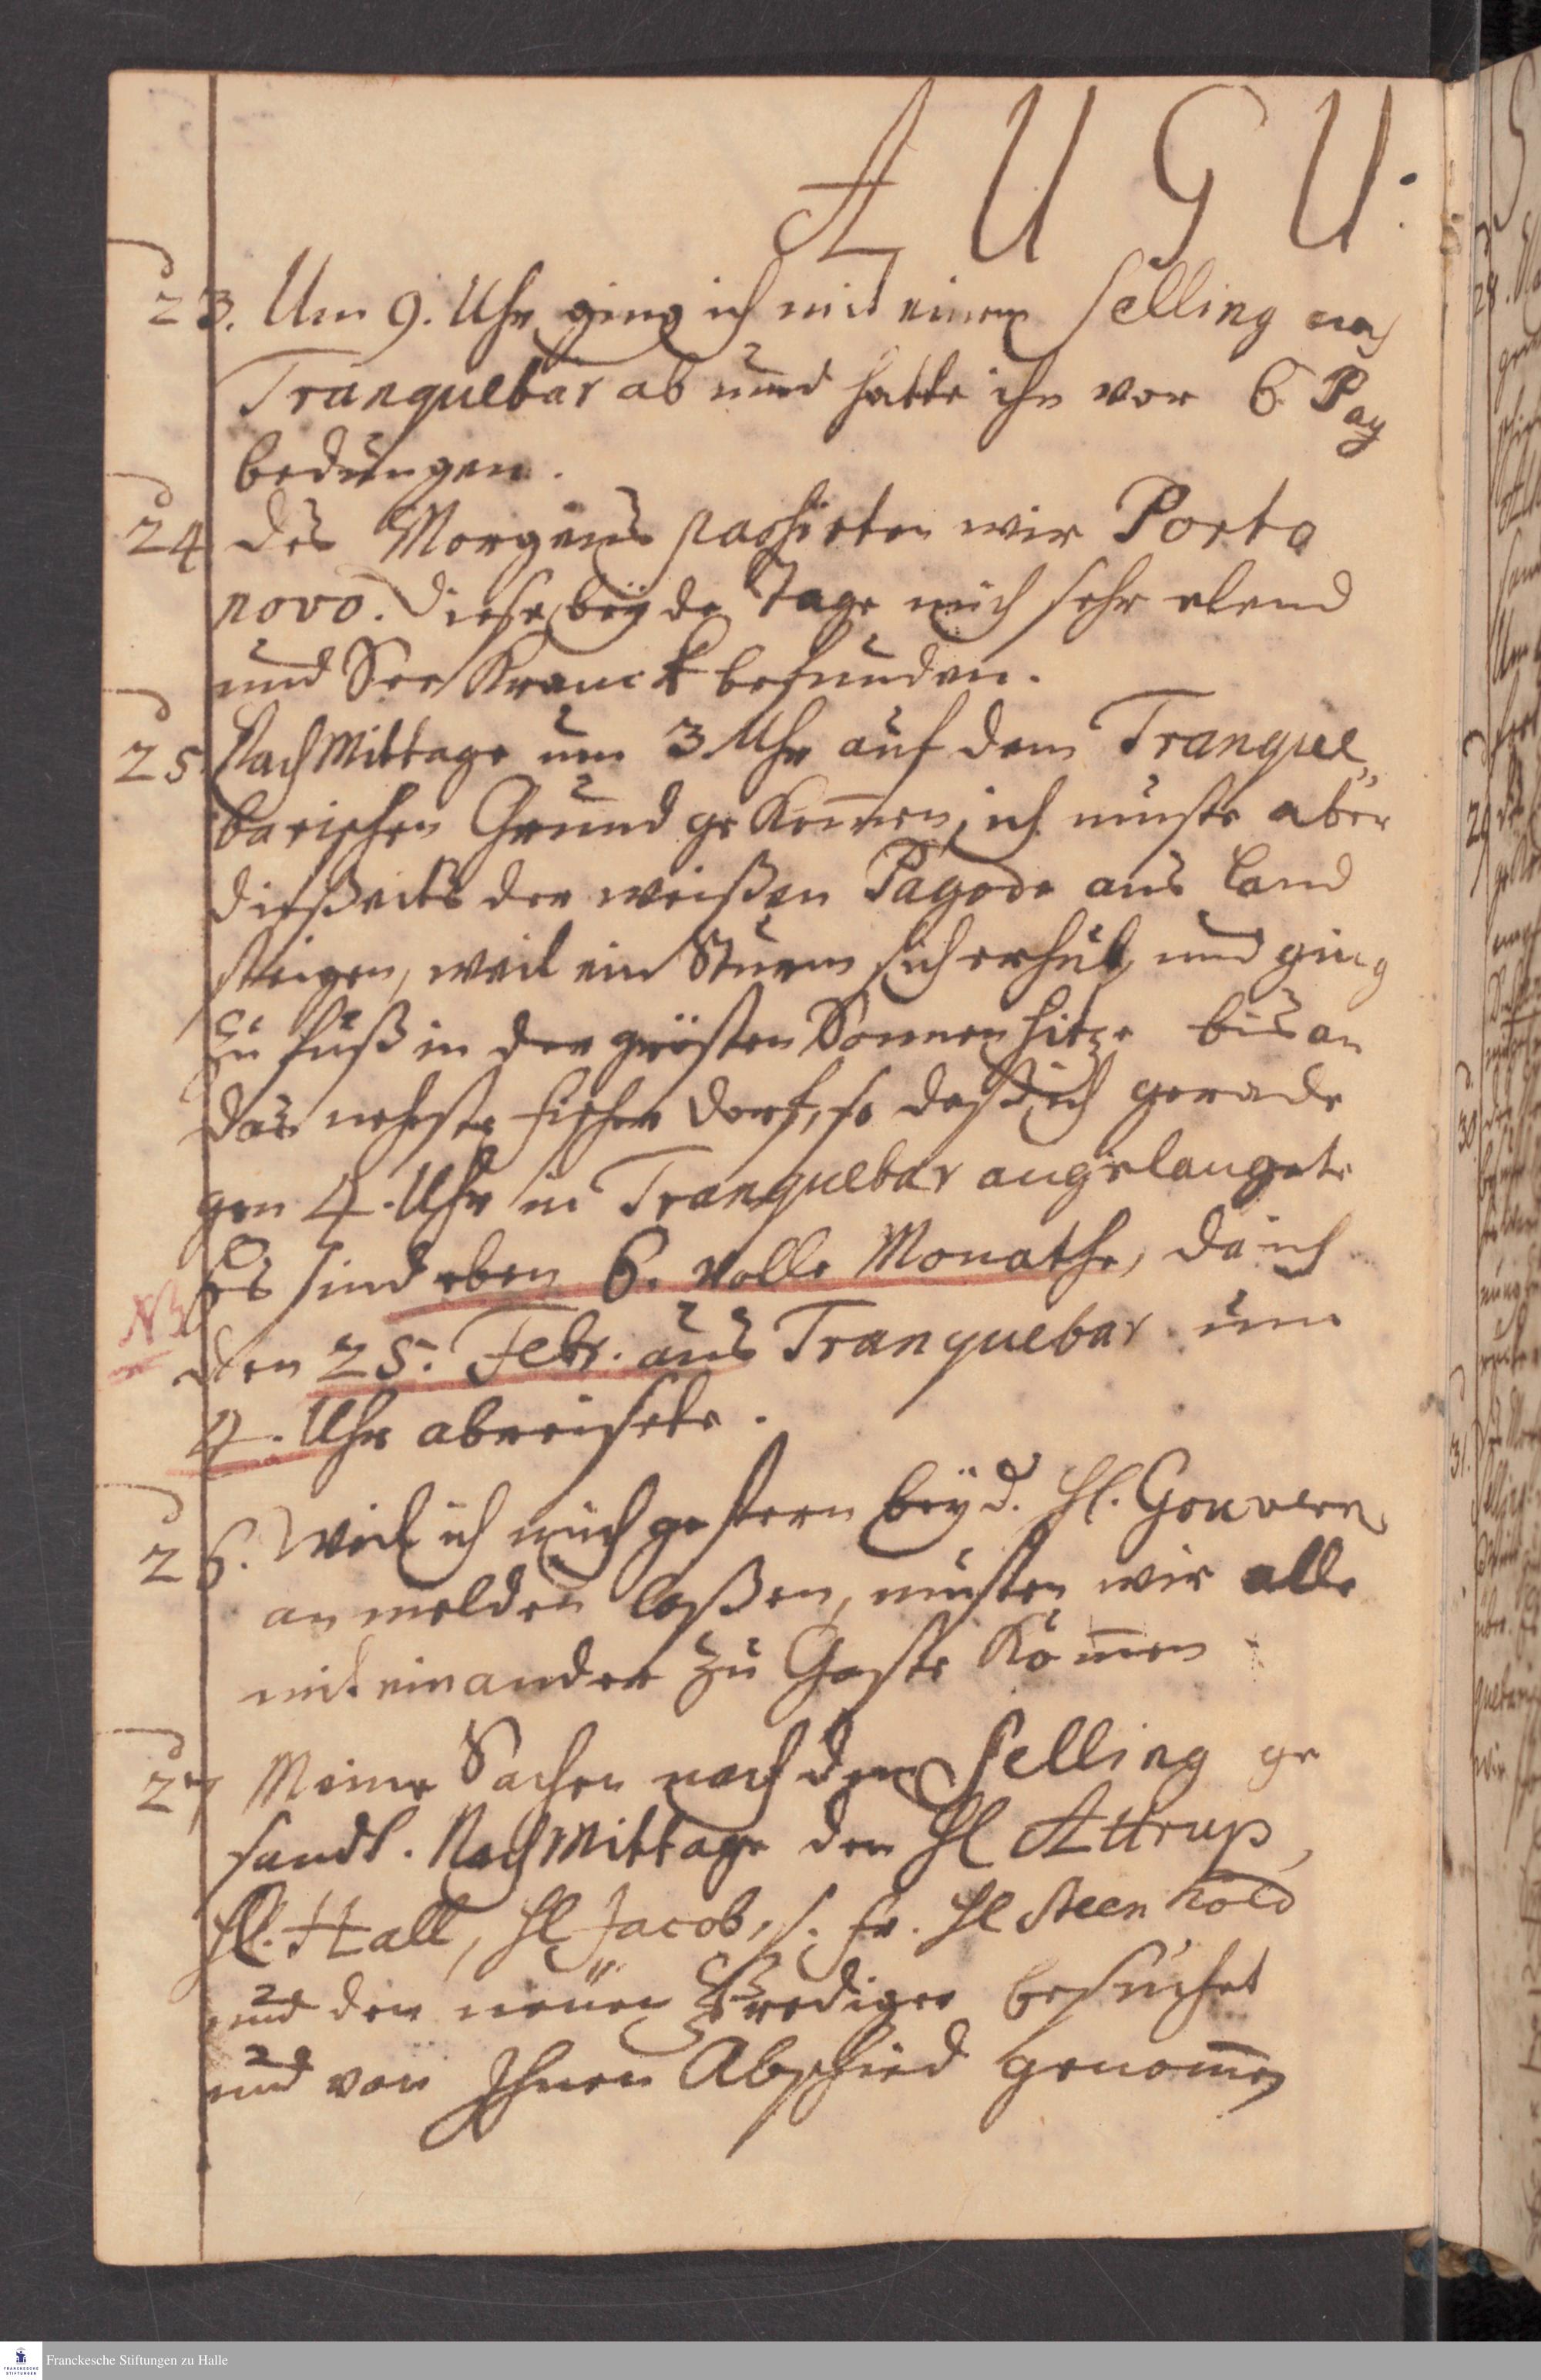 A U G U.
23. Um 9. Uhr ging ich mit einem Selling nach
Tranquebar ab und hatte ihn vor 6 Pag
bedungen.
24 des Morgens passirten wir Porto
novo. Diese beyde Tage mich sehr elend
und See Kranck befunden.
25. Nach Mittage um 3 Uhr auf dem Tranque„
barischen Grund gekom̄en, ich muste aber
dießeits der weißen Pagode ans Land
steigen, weil ein Sturm sich erhub, und ging
zu fuß in der grösten Sonnen hitze bis an
das nehste fischer Dorf, so daß ich gerade
gen 4. Uhr in Tranquebar angelangete
Es sind eben 6. volle Monathe, da ich
NB
den 25. Febr. aus Tranquebar um
4. Uhr abreisete.
26. Weil ich mich gestern bey d. Hl. Gouvern.
anmelden laßen, musten wir alle
mit einander zu Gaste kom̄en
27 Meine Sachen nach dem Selling ge
sandt. Nach Mittage den Hl Attrup,
Hl. Hall, Hl Jacob, s. fr. Hl Steenhold
und den neuen Prediger besuchet
und von Ihnen Abschied genom̄en
Franckesche Stiftungen zu Halle